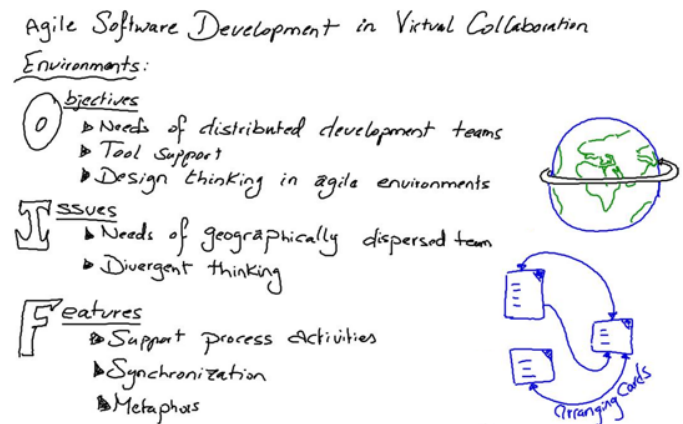 Agile Software Development in Virtual Collaboration
Environments:
Objectives
Needs of distributed development teams
Tool support
Design thinking in agile environments
Issues
Needs of geographically dispersed team
Divergent thinking
Features
Support process activities
Synchronization
Metaphors
arranging cards